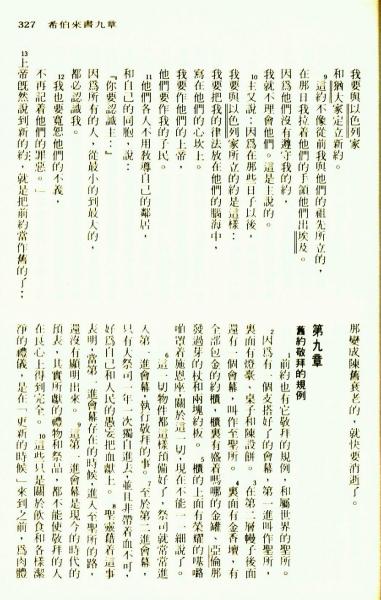 327 希伯來書九章
我要與以色列家
和猶大家定立新約。
9這約不像從前我與他們的祖先所立的,
在那日我拉着他們的手領他們出埃及。
因為他們沒有遵守我的約,
我就不理會他們。這是主說的。
10主又說:因為在那些日子以後,
我要與以色列家所立的約是這樣:
我要把我的律法放在他們的腦海中,
寫在他們的心坎上。
我要作他們的上帝,
他們要作我的子民。
11他們各人不用教導自己的鄰居,
和自己的同胞,說:
『你要認識主。』
因為所有的人,從最小的到最大的,
都必認識我。
12我也要寬恕他們的不義,
不再記着他們的罪惡。」
13上帝既然說到新的約,就是把前約當作舊的了;
那變成陳舊衰老的,就快要消滅了。
第九章
舊約敬拜的規例
1前約也有它敬拜的規例,和屬世界的聖所。
2因為有一個支搭好了的會幕,第一進叫作聖所,
裏面有燈臺、桌子和陳設餅。3在第二層幔子後面
還有一個會幕,叫作至聖所。4裏面有金香壇,有
全部包金的約櫃,櫃裏有盛着嗎哪的金罐、亞倫那
發過芽的杖和兩塊約板。5櫃的上面有榮耀的𠼻嚕
𠺕罩着施恩座。關於這一切,現在不能一一細說了。
6這一切物件都這樣預備好了,祭司就常常進
入第一進會幕,執行敬拜的事。7至於第二進會幕,
只有大祭司一年一次獨自進去,並且非帶着血不可,
好為自己和人民的愚妄把血獻上。8聖靈藉着這事
表明,當第一進會幕存在的時候,進入至聖所的路,
還沒有顯明出來。9這第一進會幕是現今的時代的
預表,其實所獻的禮物和祭品,都不能使敬拜的人
在良心上得到完全。10這些只是關於飲食和各樣潔
淨的禮儀,是在「更新的時候」來到之前,為肉體